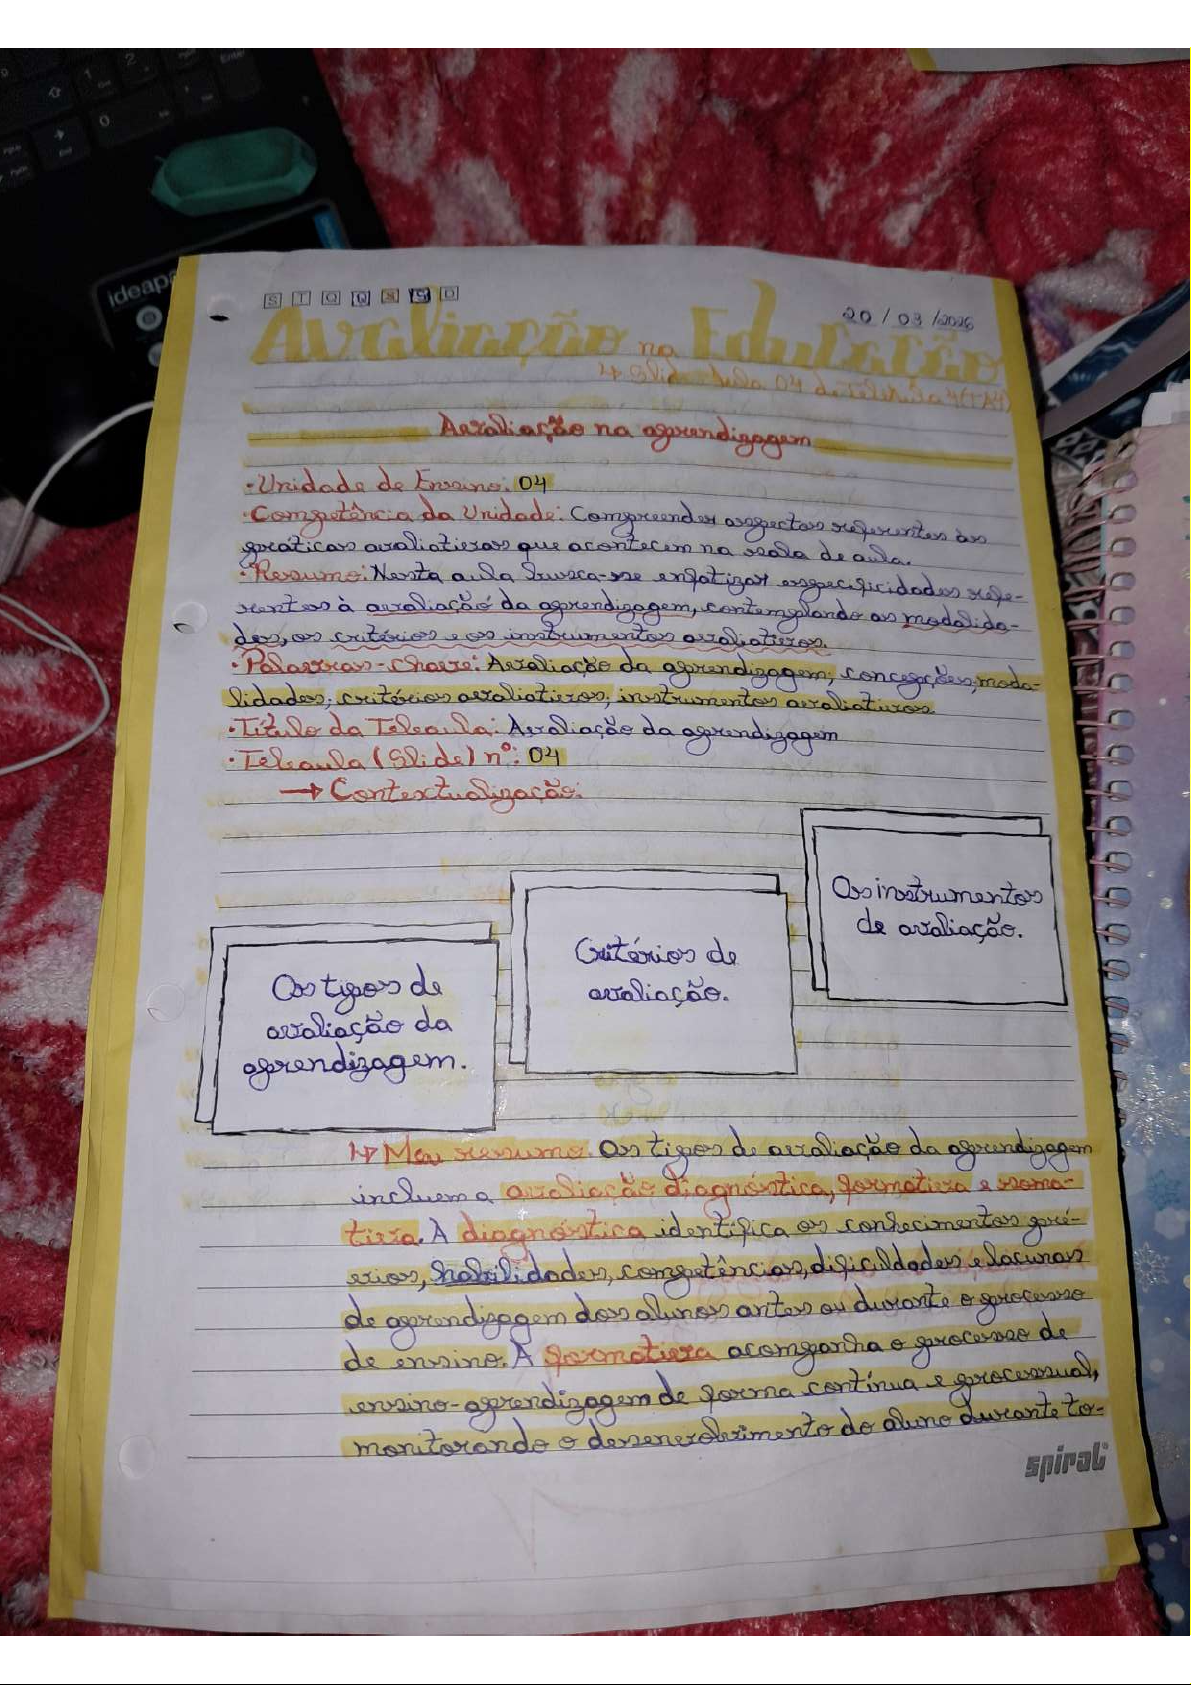 S T Q Q S S D
20/03/2026
Avaliação na Educação
↳ Slide Aula 04 da teleaula 4 (TA4)
Avaliação na aprendizagem
• Unidade de Ensino: 04
• Competência da Unidade: Compreender aspectos referentes às
práticas avaliativas que acontecem na sala de aula.
• Resumo: Nesta aula busca-se enfatizar especificidades refe-
rentes à avaliação da aprendizagem, contemplando as modalida-
des, os critérios e os instrumentos avaliativos.
• Palavras-chave: Avaliação da aprendizagem; concepções; moda-
lidades; critérios avaliativos; instrumentos avaliativos.
• Título da Teleaula: Avaliação da aprendizagem
• Teleaula (Slide) nº: 04
→ Contextualização:
Os tipos de
avaliação da
aprendizagem.
Critérios de
avaliação.
Os instrumentos
de avaliação.
↳ Meu resumo: Os tipos de avaliação da aprendizagem
incluem a avaliação diagnóstica, formativa e soma-
tiva. A diagnóstica identifica os conhecimentos pré-
vios, habilidades, competências, dificuldades e lacunas
de aprendizagem dos alunos antes ou durante o processo
de ensino. A formativa acompanha o processo de
ensino-aprendizagem de forma contínua e processual,
monitorando o desenvolvimento do aluno durante to-
spiral
ideapa